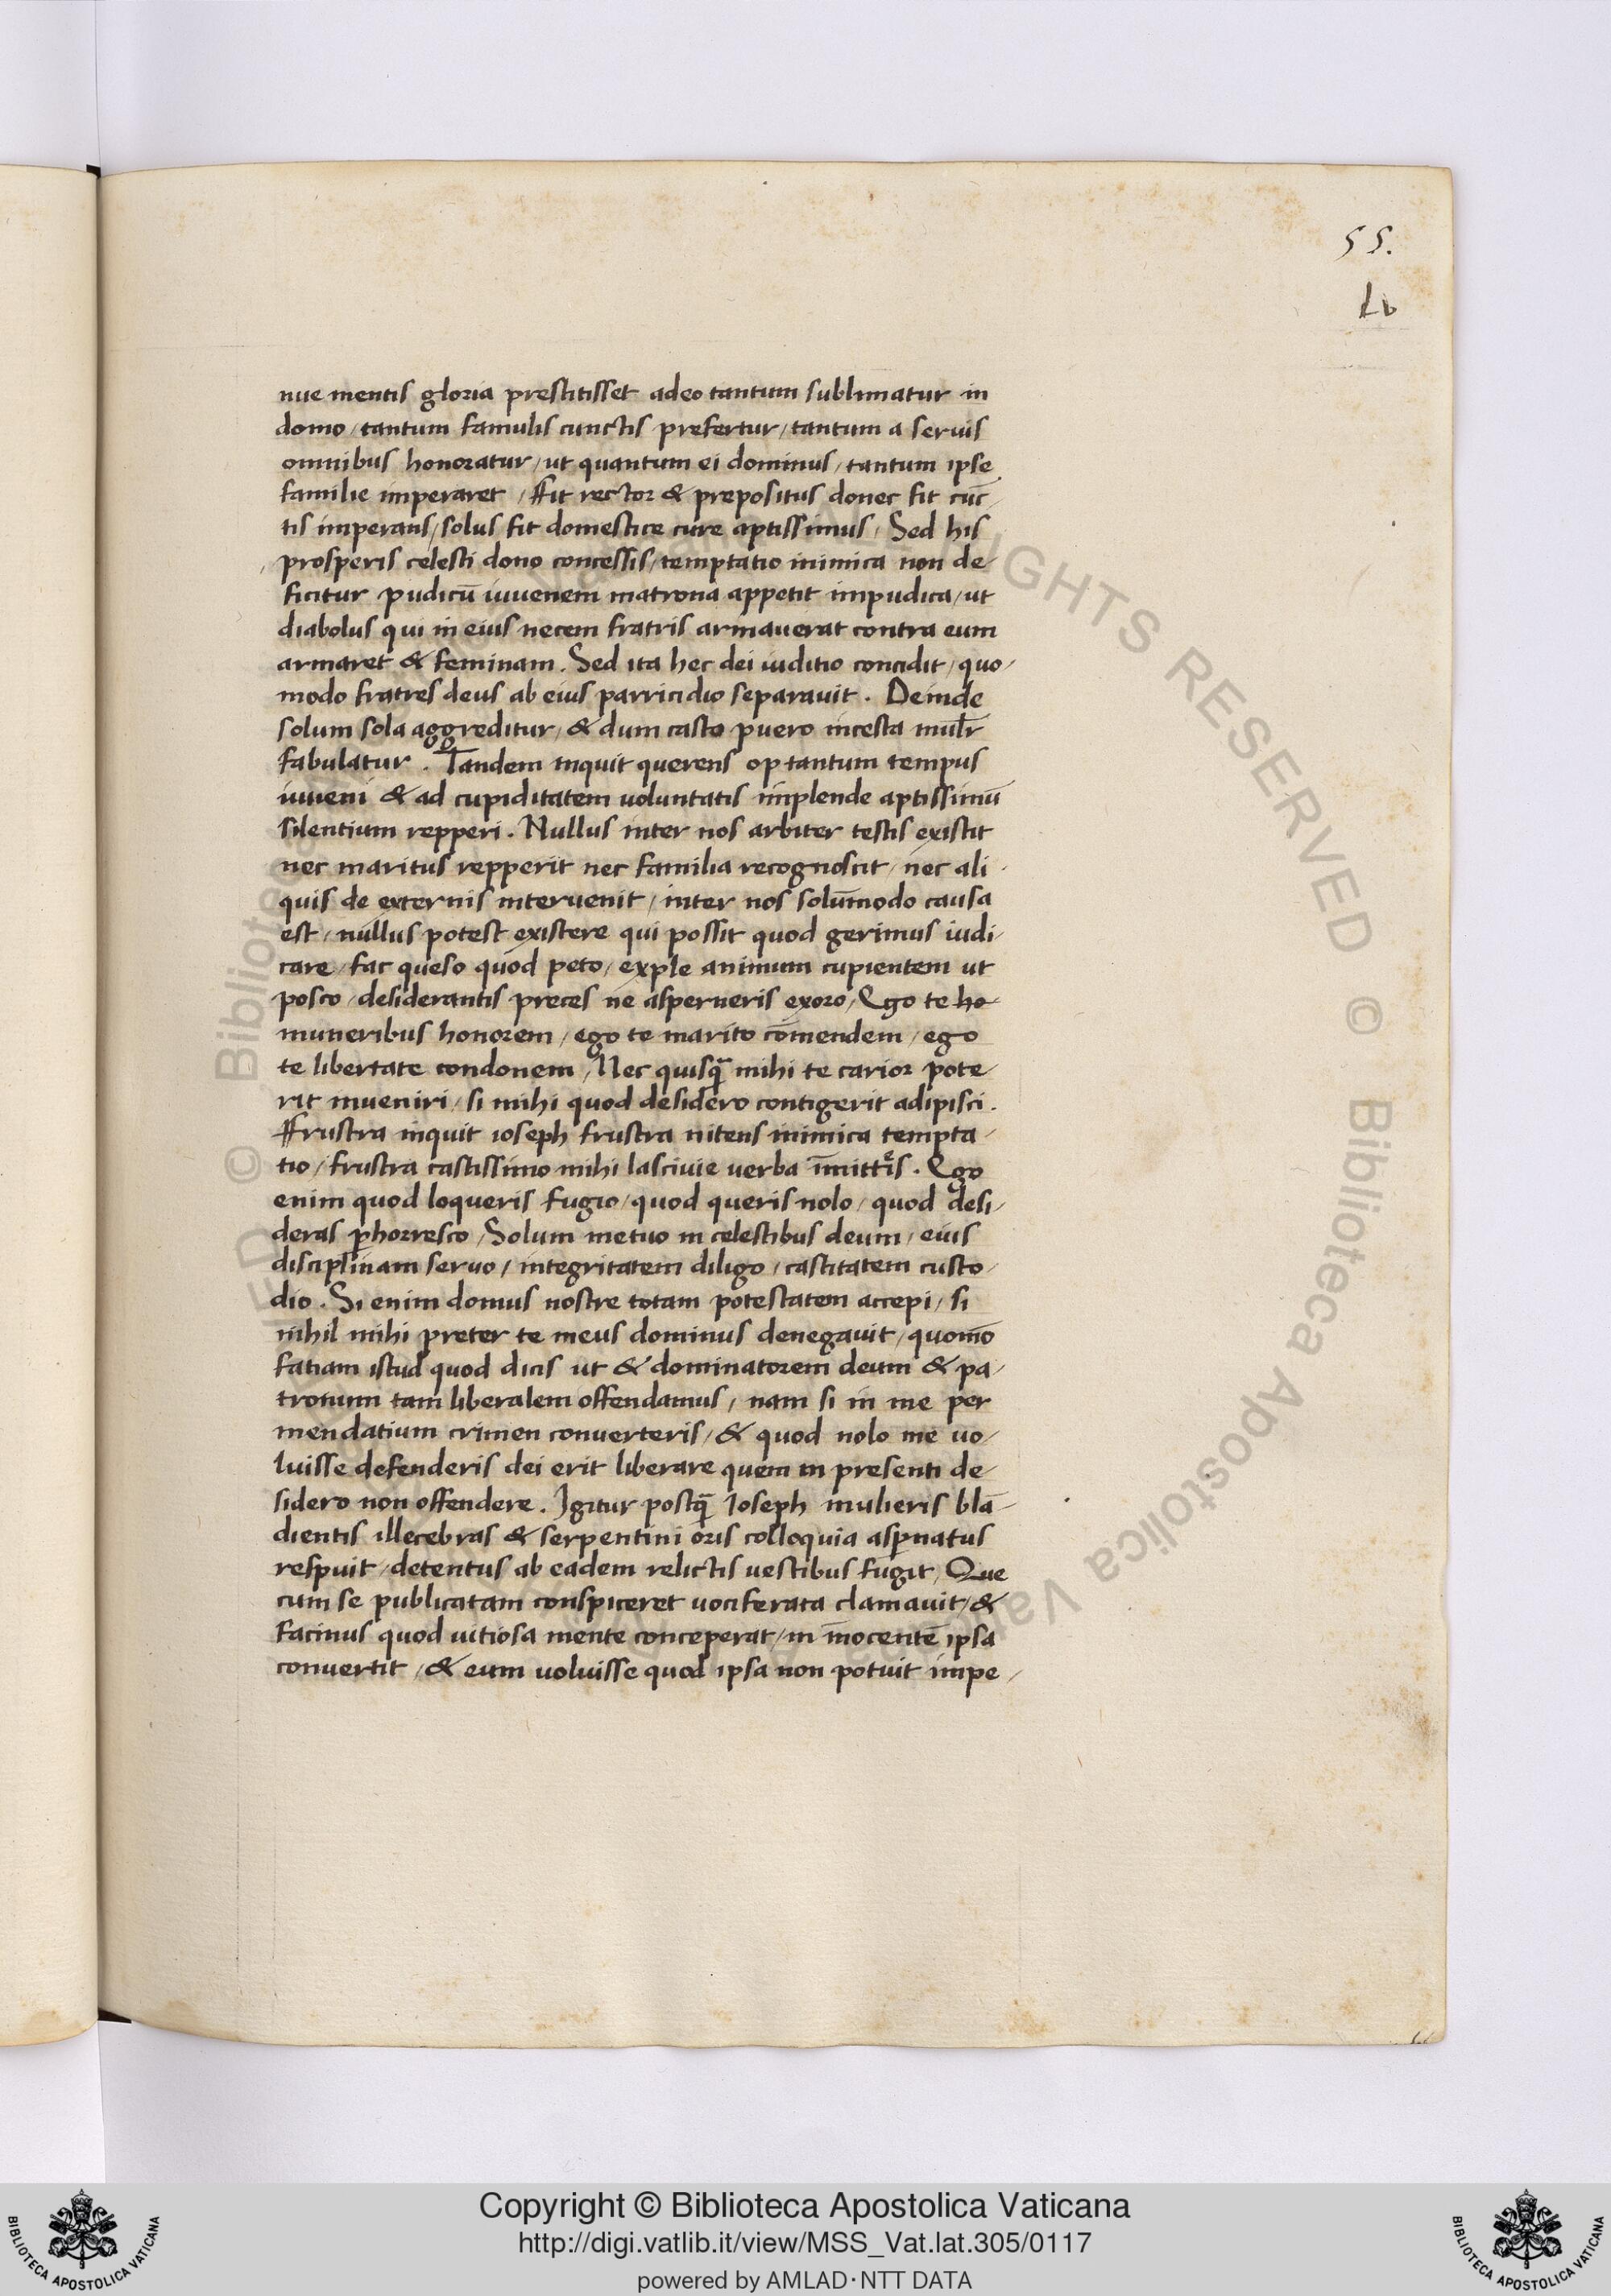 55.
Lv
nue mentis gloria prestitisset adeo tantum sublimatur in
domo / tantum famulis cunctis prefertur / tantum a seruis
omnibus honoratur / ut quantum ei dominus / tantum ipse
familie imperaret / ffit rector & prepositus donec fit cūc-
tis imperans / solus fit domestice cure aptissimus / Sed his
prosperis celesti dono concessis / temptatio inimica non de-
ficitur pudicū iuuenem matrona appetit impudica / ut
diabolus qui in eius necem fratris armauerat contra eum
armaret & feminam . Sed ita hec dei iuditio concidit / quo-
modo fratres deus ab eius parricidio separauit . Deinde
solum sola aggreditur / & dum casto puero incesta mulr̄
fabulatur . Tandem inquit querens optantum tempus
inueni & ad cupiditatem uoluntatis implende aptissimū
silentium repperi . Nullus inter nos arbiter testis existit
nec maritus repperit nec familia recognoscit / nec ali-
quis de externis interuenit / inter nos solūmodo causa
est / nullus potest existere qui possit quod gerimus iudi-
care / fac queso quod peto / exple animum cupientem ut
posco / desiderantis preces ne asperneris exoro / Ego te ho
muneribus honorem / ego te marito cōmendem / ego
te libertate condonem / Nec quisq̄ mihi te carior pote-
rit inueniri / si mihi quod desidero contigerit adipisci .
ffrustra inquit ioseph frustra nitens inimica tempta-
tio / frustra castissimo mihi lasciuie uerba īmittis . Ego
enim quod loqueris fugio / quod queris nolo / quod desi-
deras ꝑhorresco / Solum metuo in celestibus deum / eius
disciplinam seruo / integritatem diligo / castitatem custo-
dio . Si enim domus nostre totam potestatem accepi / si
nihil mihi preter te meus dominus denegauit / quomō
fatiam istud quod dicis ut & dominatorem deum & pa-
tronum tam liberalem offendamus / nam si in me per
mendatium crimen conuerteris / & quod nolo me uo-
luisse defenderis dei erit liberare quem in presenti de-
sidero non offendere . Igitur postq̄ Ioseph mulieris blā-
dientis illecebras & serpentini oris colloquia asꝑnatus
respuit / detentus ab eadem relictis uestibus fugit / Que
cum se publicatam conspiceret uociferata clamauit / &
facinus quod uitiosa mente conceperat / in īnocentē ipsa
conuertit / & eum uoluisse quod ipsa non potuit impe-
Copyright © Biblioteca Apostolica Vaticana
http://digi.vatlib.it/view/MSS_Vat.lat.305/0117
powered by AMLAD·NTT DATA